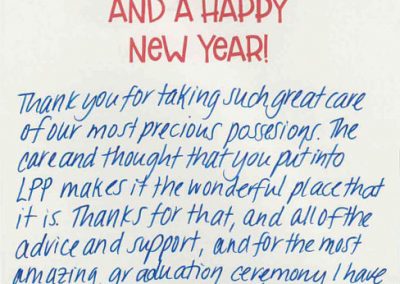 AND A HAPPY
NEW YEAR!
Thank you for taking such great care
of our most precious possesions. The
care and thought that you put into
LPP makes it the wonderful place that
it is. Thanks for that, and all of the
advice and support, and for the most
amazing graduation ceremony I have